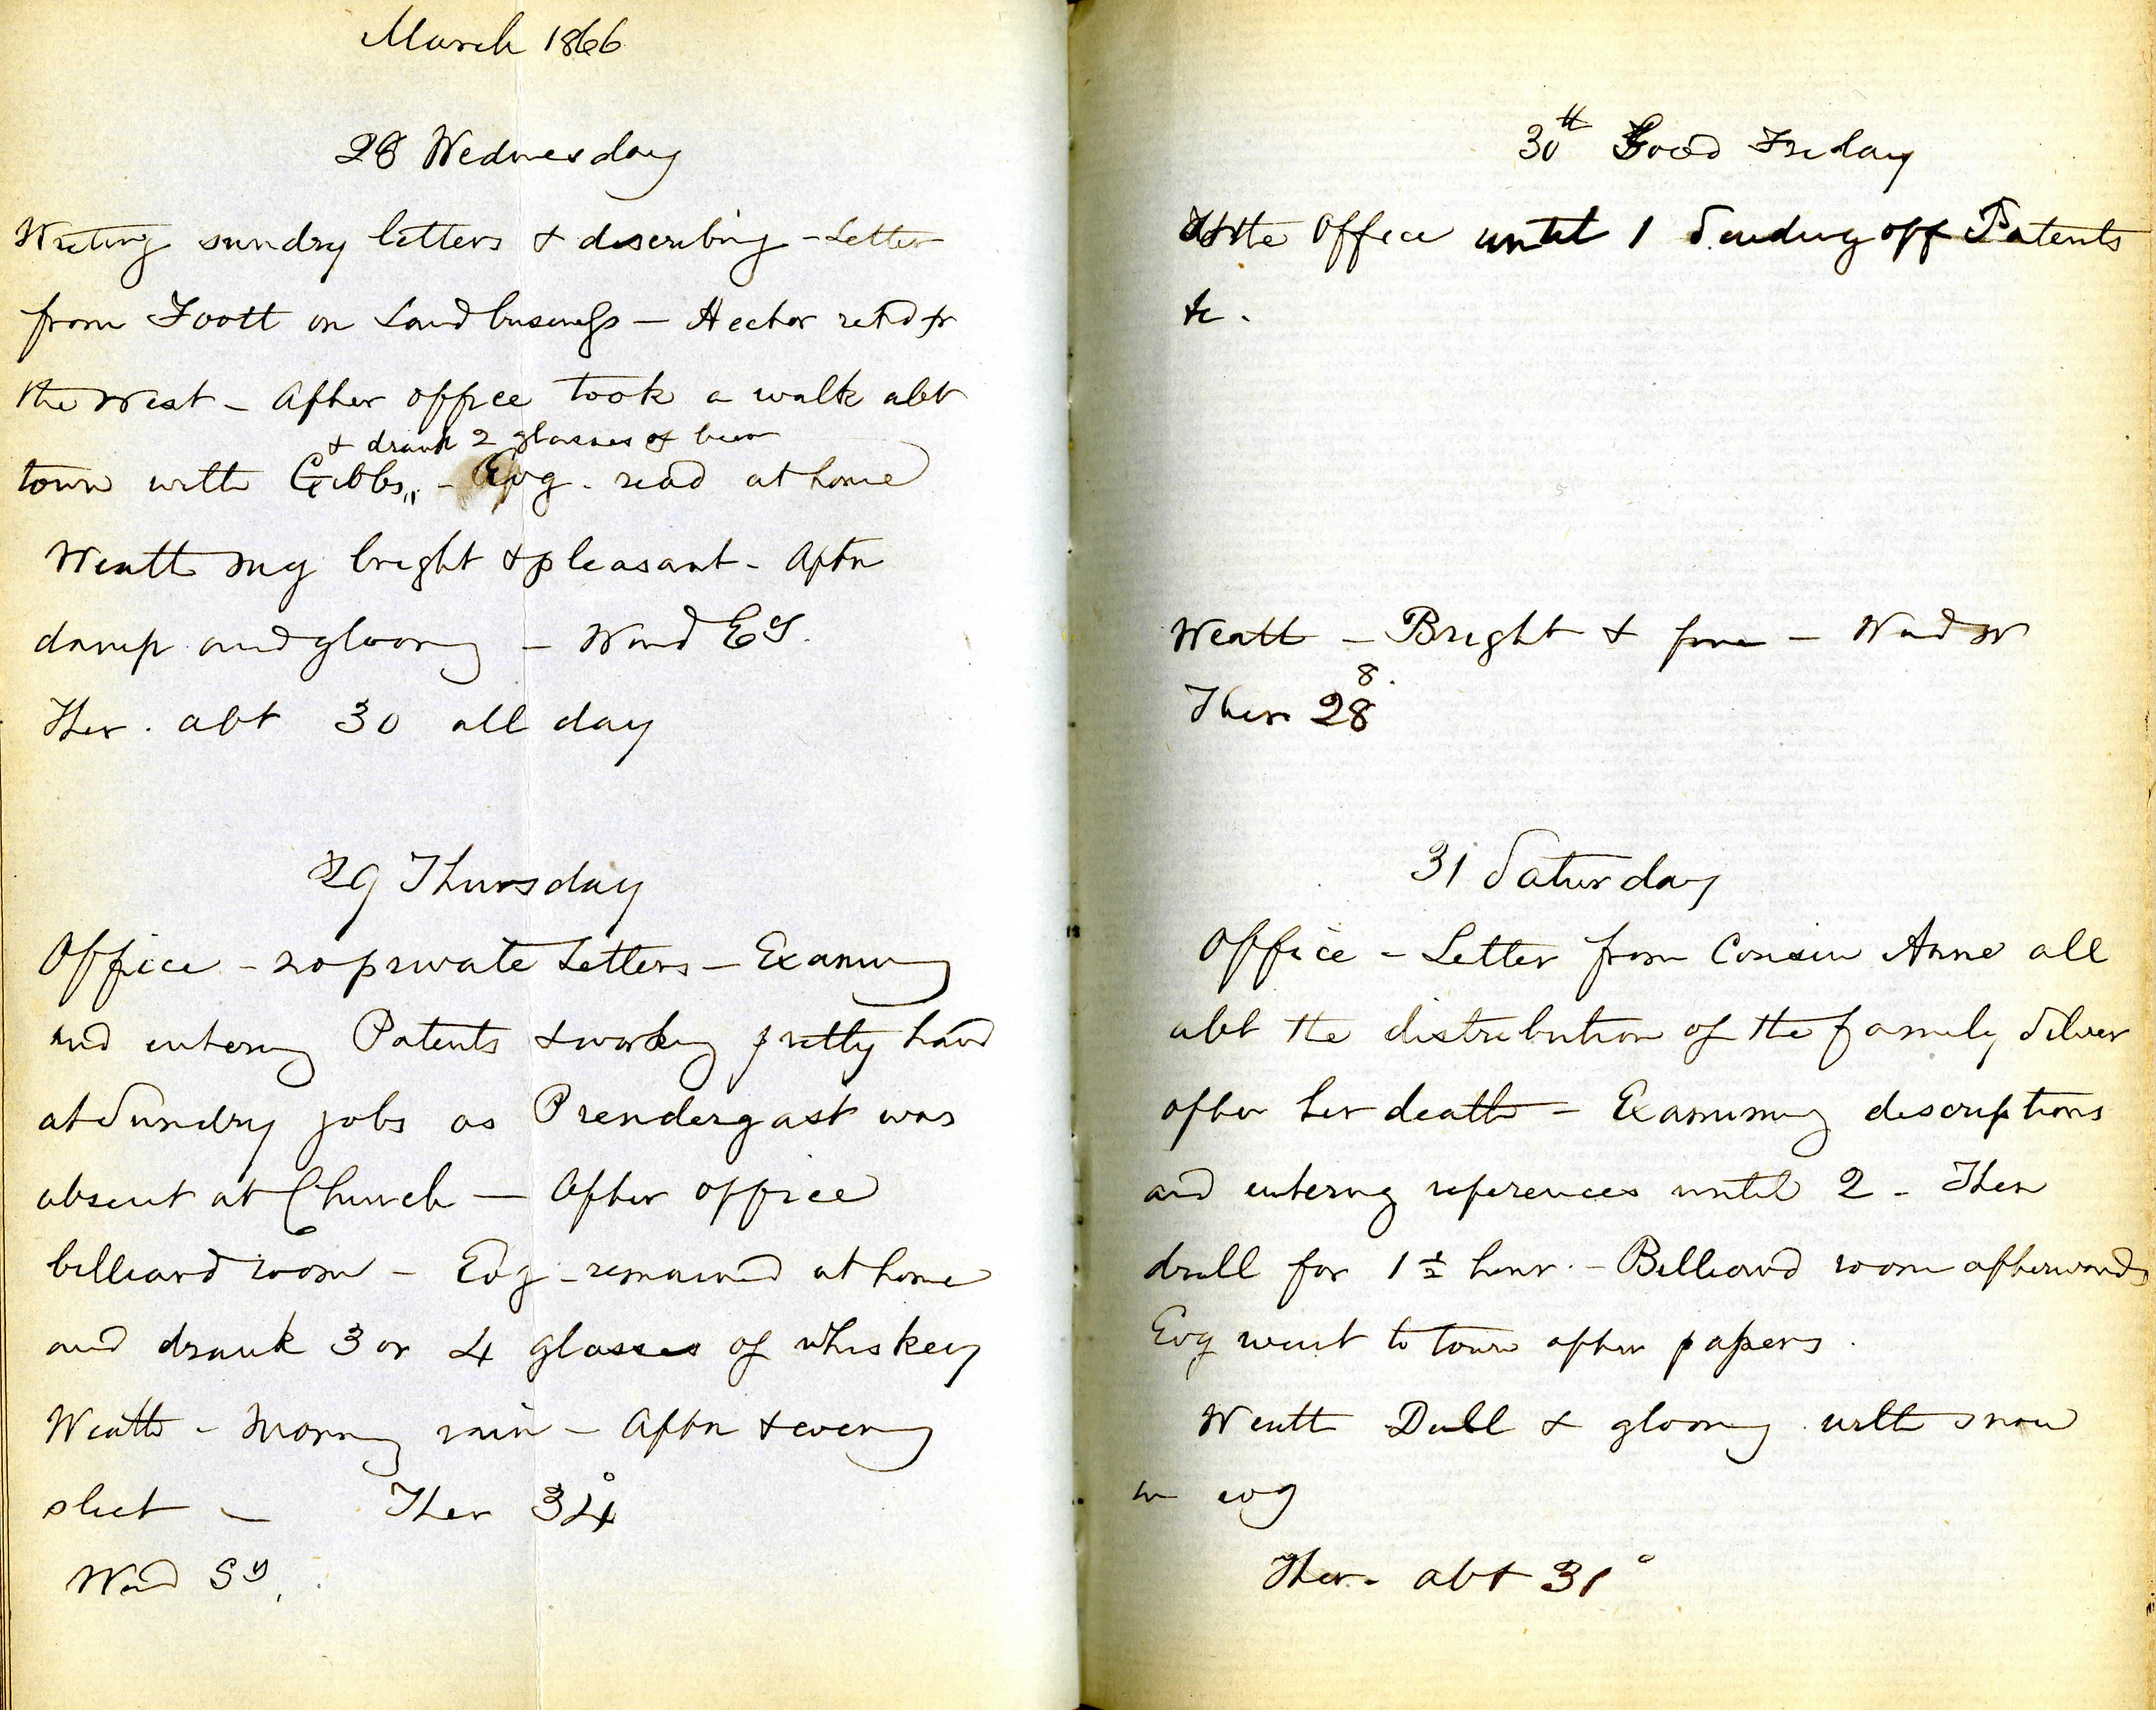 March 1866
28 Wednesday
Writing sundry letters & describing - Letter
from Foott on Land business - Hector retd fr
the West - After office took a walk abt
& drank 2 glasses of beer
town with Gibbs,, - Evg - read at home
Weath mg bright & pleasant - Aftn
damp and gloomy - Wind Ey.
Ther. abt 30 all day
29 Thursday
Office - no private Letters - Examing
and entering Patents & working pretty hard
at Sundry jobs as Prendergast was
absent at Church - After office
billiard room - Evg - remained at home
and drank 3 or 4 glasses of whiskey
Weath - Morning rain - Aftn & evening
sleet - Ther 34°
Wind Sy.
30th Good Friday
At the Office until 1 Sending off Patents
&c.
Weath - Bright & fine - Wind W
8.
Ther 28
31 Saturday
Office - Letter from Cousin Anne all
abt the distribution of the family Silver
after her death - Examining descriptions
and entering references until 2 - Then
drill for 1 1/2 hour. - Billiard room afterwards
Evg went to town after papers.
Weath Dull & gloomy with snow
in evg
Ther - abt 31°